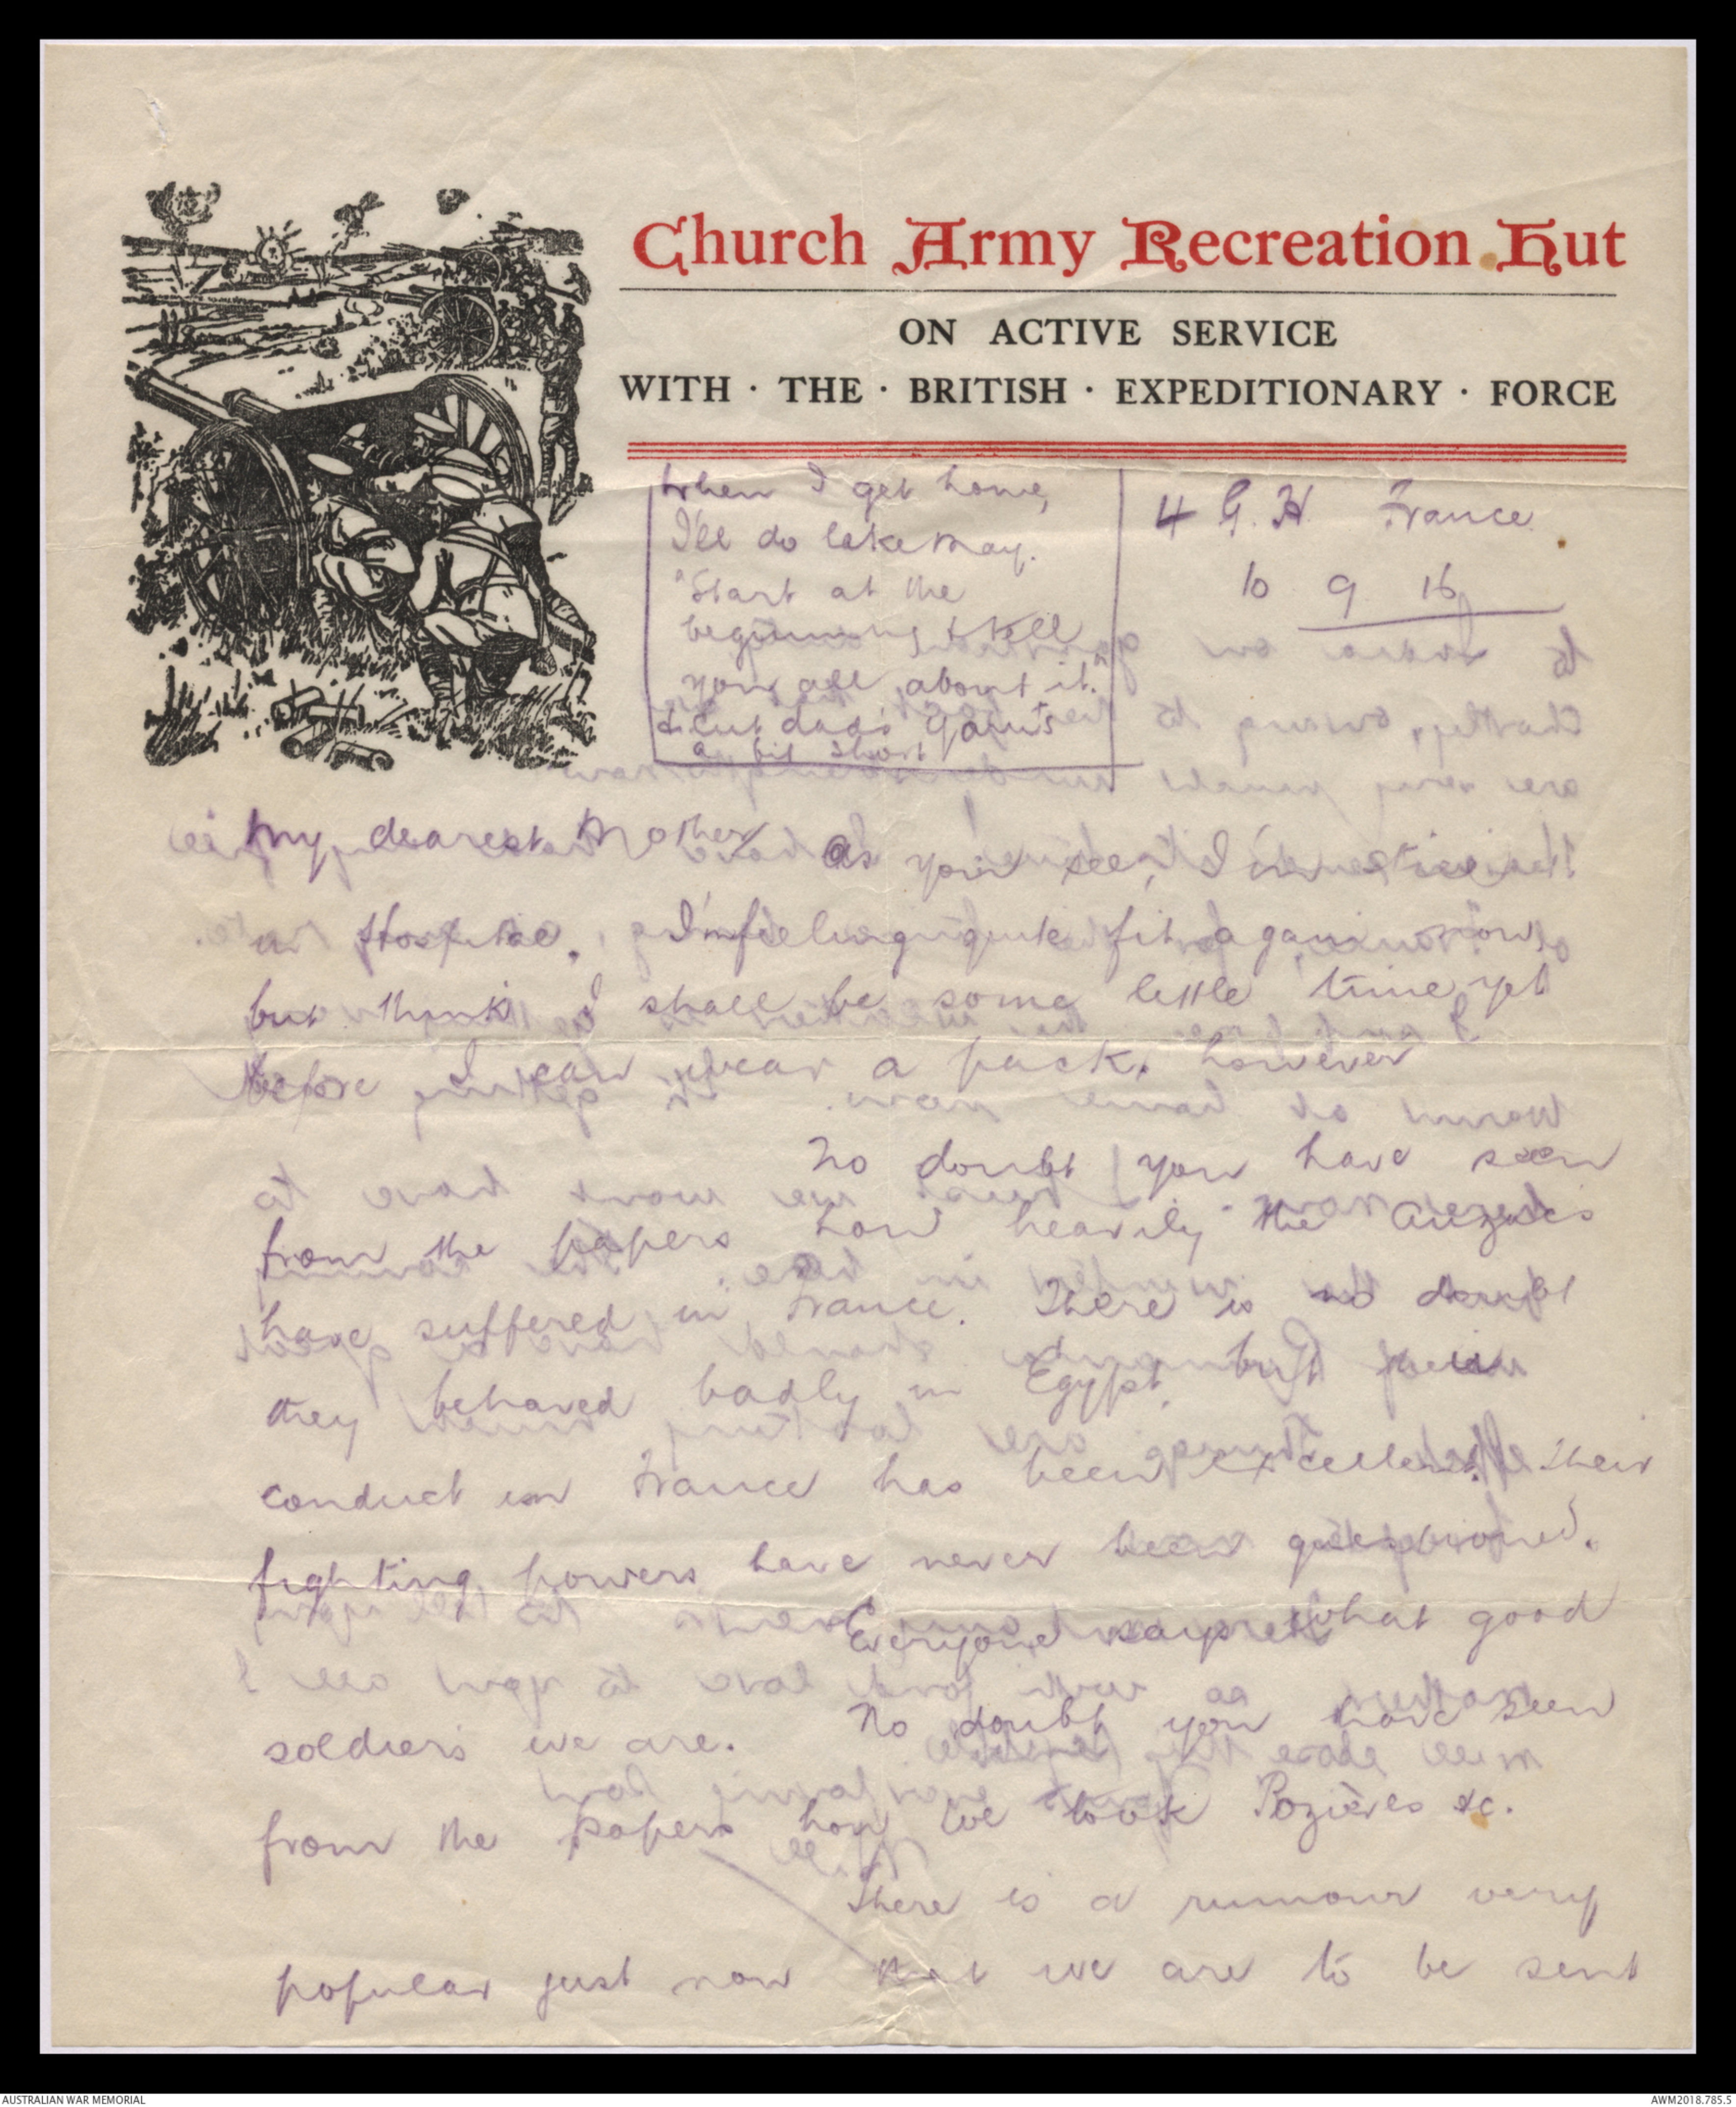 Church Army Recreation Hut
ON ACTIVE SERVICE
WITH · THE · BRITISH · EXPEDITIONARY · FORCE
When I get home,
I'll do like May.
"Start at the
beginning & tell
you all about it."
& cut dad's yarns
a bit short
4 G. H. France.
10 9 16
My dearest Mother
As you see, I'm still
in Hospital. I'm feeling quite fit again now,
but think I shall be some little time yet
before I can wear a pack. however
No doubt you have seen
from the papers how heavily the Anzacs
have suffered in France. There is no doubt
they behaved badly in Egypt, but their
conduct in France has been excellent. Their
fighting powers have never been questioned.
Everyone says what good
soldiers we are. No doubt you have seen
from the papers how we took Pozières &c.
There is a rumour very
popular just now that we are to be sent
AUSTRALIAN WAR MEMORIAL
AWM2018.785.5